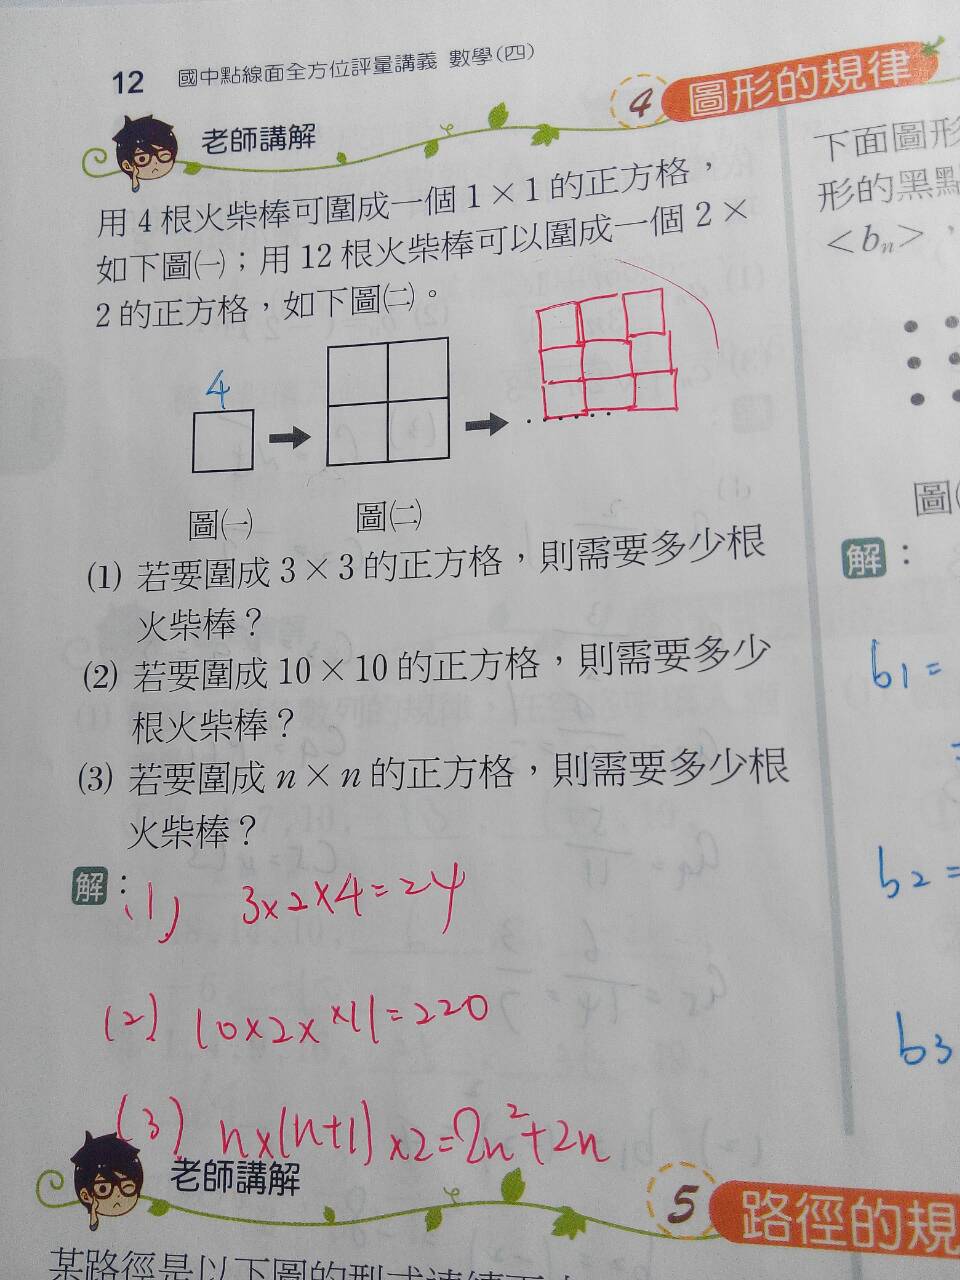 12 國中點線面全方位評量講義 數學(四)
老師講解
4 圖形的規律
用 4 根火柴棒可圍成一個 1 × 1 的正方格，
如下圖㈠；用 12 根火柴棒可以圍成一個 2 ×
2 的正方格，如下圖㈡。
4
圖㈠ 圖㈡
(1) 若要圍成 3 × 3 的正方格，則需要多少根
火柴棒？
(2) 若要圍成 10 × 10 的正方格，則需要多少
根火柴棒？
(3) 若要圍成 n × n 的正方格，則需要多少根
火柴棒？
解：(1) 3×2×4=24
(2) 10×2××11=220
(3) n×(n+1)×2=2n²+2n
下面圖形
形的黑點
<bₙ>，
圖(
解：
b1=
=
b2=
b3
老師講解
5 路徑的規
某路徑是以下圖的型式連續